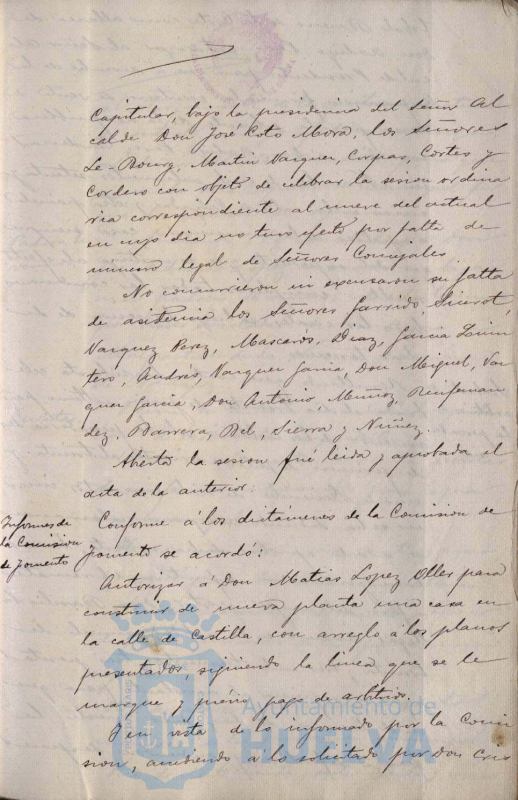 Capitular, bajo la presidencia del Señor Al
calde Don José Coto Mora, los Señores
Le-Bourg, Martin Vazquez, Corpas, Cortes y
Cordero con objeto de celebrar la sesion ordina
ria correspondiente al nueve del actual
en cuyo dia no tuvo efecto por falta de
número legal de Señores Concejales.
No concurrieron ni excusaron su falta
de asistencia los Señores Garrido,
Vazquez Perez, Mascarós, Diaz, Garcia Quin
tero, Andrés, Vazquez Garcia, Don Miguel, Vaz
quez Garcia, Don Antonio, Muñoz,
dez, Barrera, Bel, Sierra y Nuñez.
Abierta la sesion fué leida y aprobada el
acta de la anterior.
Informes de
la Comision
de Fomento
Conforme á los dictámenes de la Comision de
Fomento se acordó:
Autorizar á Don Matias Lopez Oller para
construir de nueva planta una casa en
la calle de Castilla, con arreglo á los planos
presentados, siguiendo la linea que se le
marque y prévio pago de arbitrios.
Y en vista de lo informado por la Comi
sion, accediendo a lo solicitado por don Cris
Ayuntamiento de
HUELVA